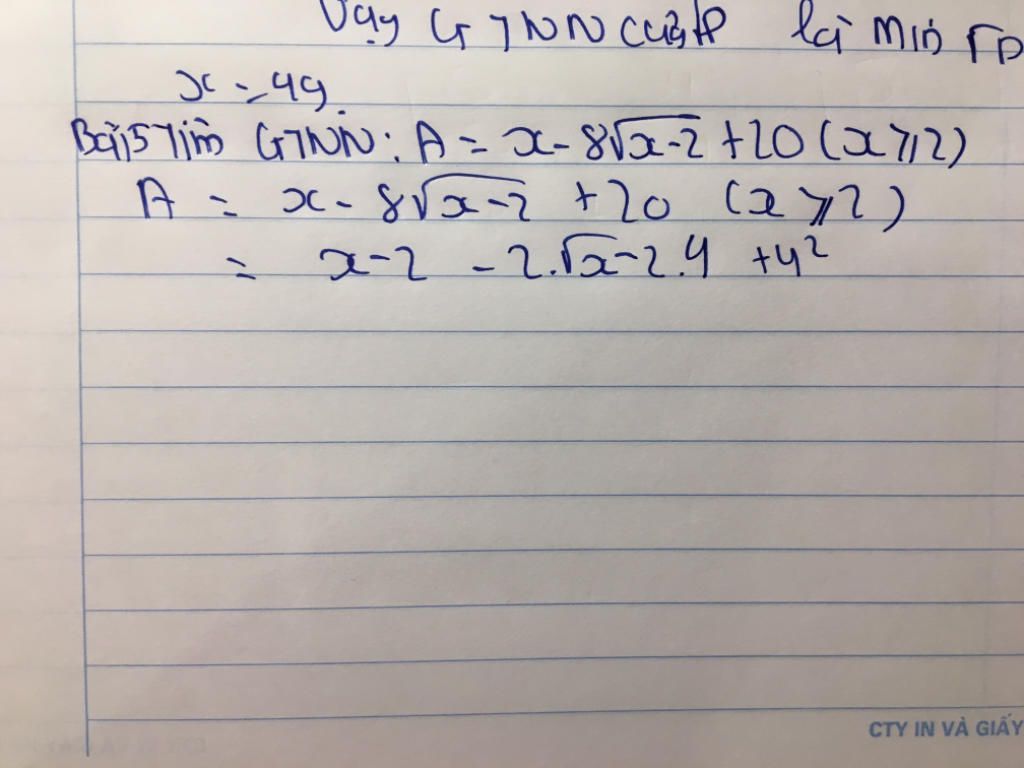 Vậy GTNN của P là Min √P
x = 49.
Bài 5 Tìm GTNN: A = x - 8√x-2 + 20 (x ≥ 2)
A = x - 8√x-2 + 20 (x ≥ 2)
= x - 2 - 2.√x-2.4 + 4²
CTY IN VÀ GIẤY